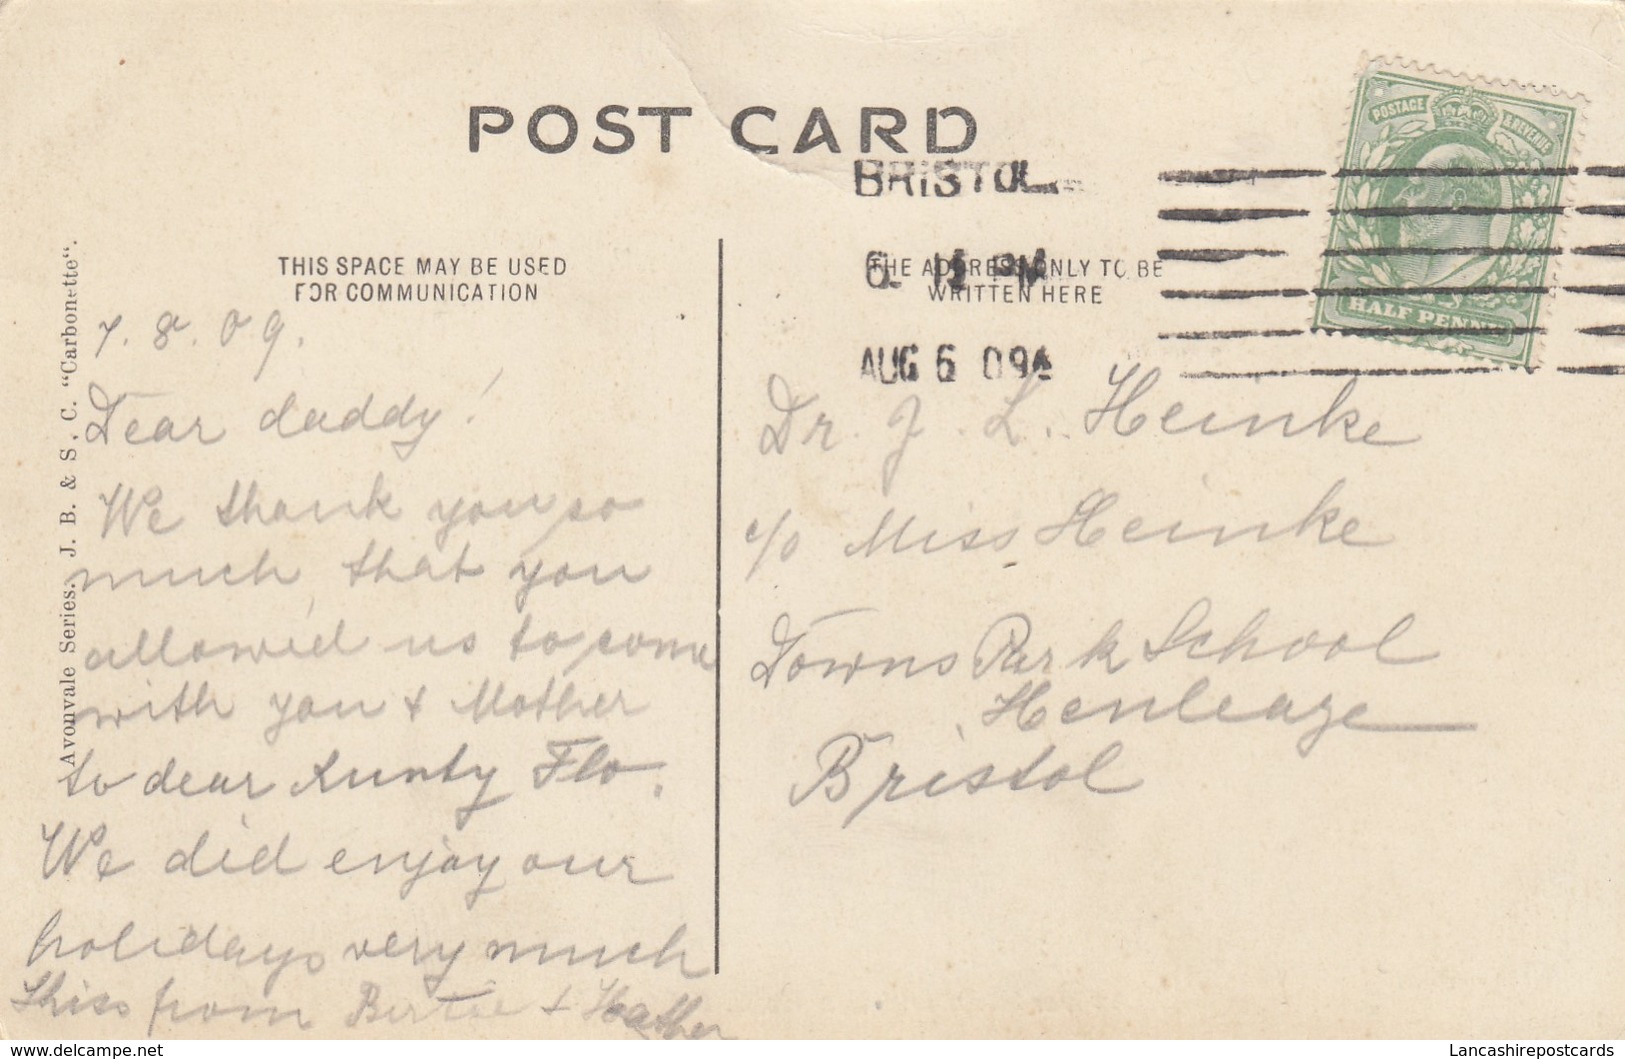 POST CARD
BRISTOL
6. 15 PM
AUG 6 09
POSTAGE & REVENUE
HALF PENNY
THIS SPACE MAY BE USED
FOR COMMUNICATION
THE ADDRESS ONLY TO BE
WRITTEN HERE
Avonvale Series. J. B. & S. C. "Carbonette".
7. 8. 09.
Dear daddy!
We thank you so
much that you
allow'ed us to come
with you & Mother
to dear Aunty Flo.
We did enjoy our
holidays very much
this from Bertie & Heather
Dr. J. L. Heinke
c/o Miss Heinke
Downs Park School
Henleaze
Bristol
Lancashirepostcards
www.delcampe.net